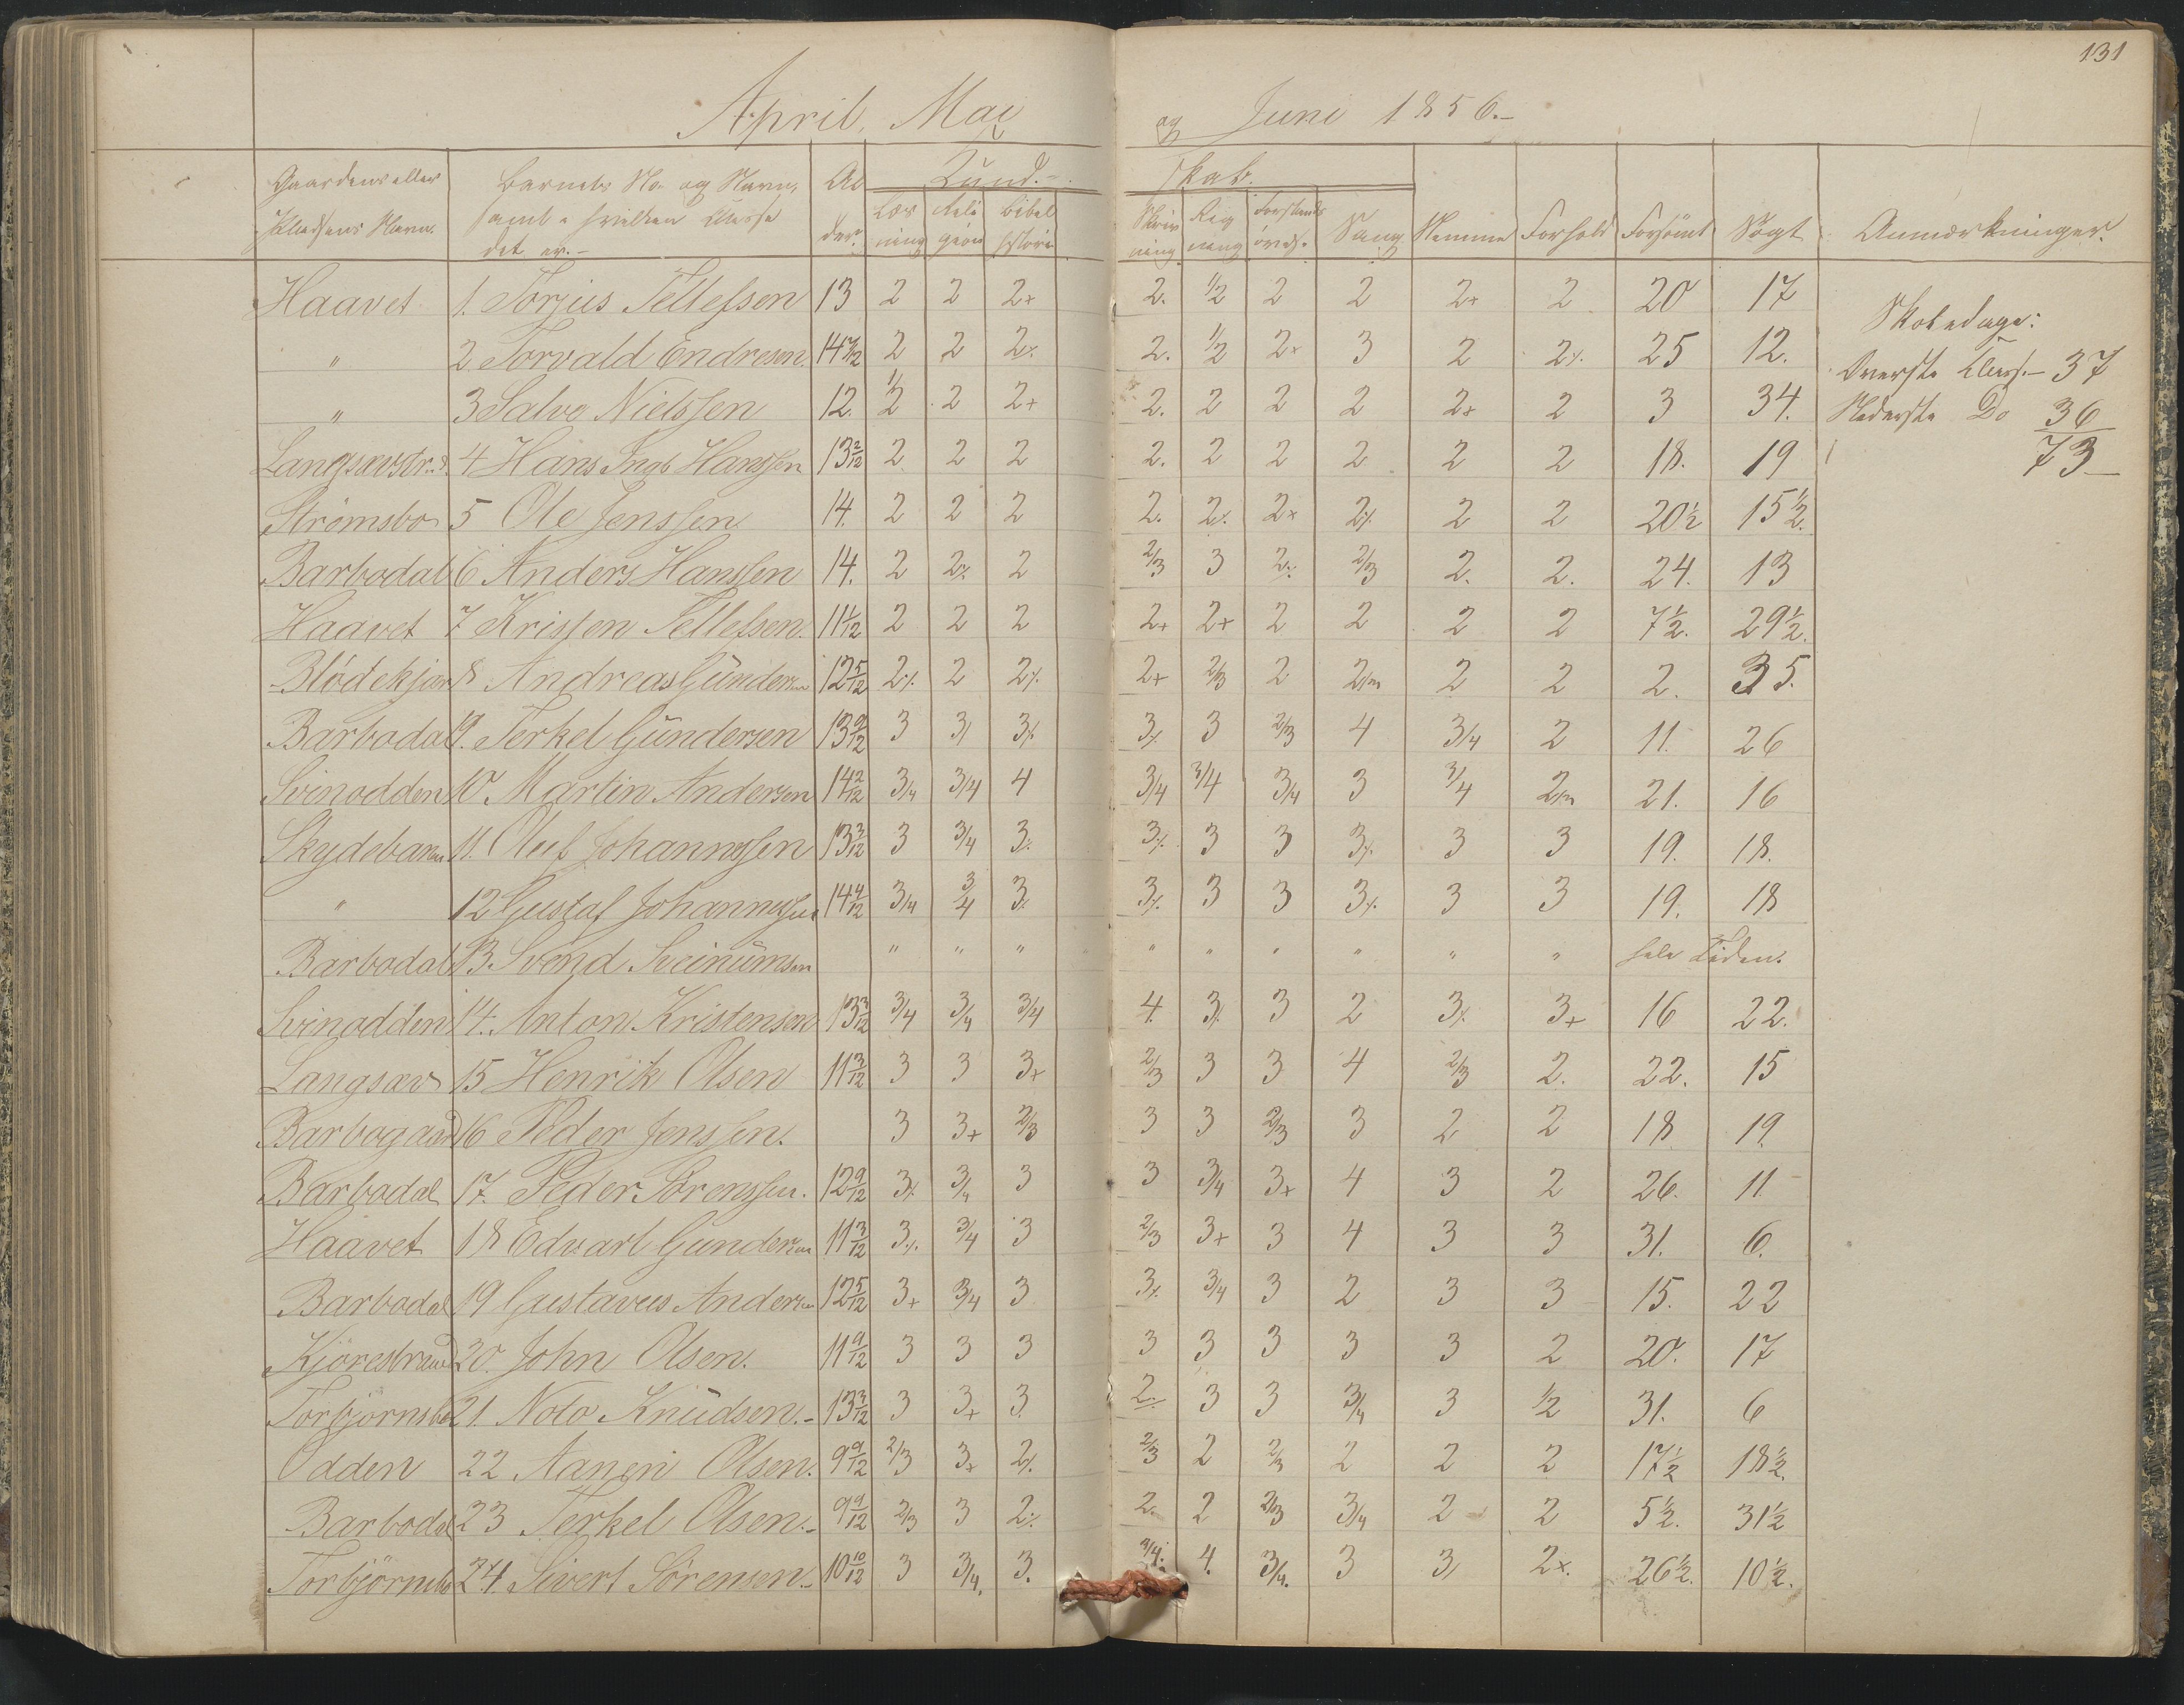 131
April, Mai og Juni 1856.-
Gaardens eller Pladsens Navn. Barnets No. og Navn, samt i hvilken Classe det er.- Alder. Kundskab. Nemme Forhold Forsømt Søgt Anmærkninger.
Læsning Religion Bibelhistorie Skrivning Regning Forstandsøvels. Sang
Haavet 1. Torjus Tellefsen 13 2 2 2+ 2. 1/2 2 2 2+ 2 20 17
" 2 Torvald Endresen. 14 7/12 2 2 2% 2. 1/2 2+ 3 2 2% 25 12.
" 3 Salve Nielssen 12. 1/2 2 2+ 2. 2 2 2 2+ 2 3 34.
Langsævstr. 4 Hans Ingb Hanssen 13 2/12 2 2 2 2. 2 2 2 2 2 18. 19
Strømsbo 5 Ole Jenssen 14. 2 2 2 2. 2% 2+ 2% 2 2 20½ 15½.
Barbodal 6 Anders Hanssen 14. 2 2% 2 2/3 3 2% 2/3 2. 2. 24. 13
Haavet 7 Krissen Tellefsen. 11 1/12 2 2 2 2+ 2+ 2 2 2 2 7½. 29½.
Blødekjær 8 Andreas Gundersen 12 5/12 2% 2 2% 2+ 2/3 2 2m 2 2 2. 35.
Barbodal 9. Terkel Gundersen 13 9/12 3 3/ 3% 3% 3 2/3 4 3/4 2 11. 26
Svinodden 10 Martin Andersen 14 2/12 3/4 3/4 4 3/4 3/4 3/4 3 3/4 2m 21. 16
Skydebanen 11. Oluf Johannssen 13 3/12 3 3/4 3% 3% 3 3 3% 3 3 19. 18.
" 12 Gustaf Johannssen 14 9/12 3/4 3/4 3% 3% 3 3 3% 3 3 19. 18
Barbodal 13. Svend Sveinumsen " " " " " " " " " hele Tiden.
Svinodden 14. Anton Kristensen 13 3/12 3/4 3/4 3/4 4. 3% 3 2 3% 3+ 16 22.
Langsæv 15 Henrik Olsen 11 3/12 3 3 3+ 2/3 3 3 4 2/3 2. 22. 15
Barbogaard 16 Peder Jenssen. 3 3+ 2/3 3 3 2/3 3 2 2 18 19.
Barbodal 17. Peder Sørenssen. 12 9/12 3% 3/4 3 3 3/4 3+ 4 3 2 26. 11.
Haavet 18 Edvart Gundersen 11 3/12 3% 3/4 3 2/3 3+ 3 4 3 3 31. 6.
Barbodal 19 Gustavus Andersen 12 5/12 3+ 3/4 3 3% 3/4 3 2 3 3 15. 22
Kjørestrand 20. John Olsen. 11 9/12 3 3 3 3 3 3 3 3 2 20. 17
Torbjørnsbo 21. Noto Knudsen.- 13 3/12 3 3+ 3. 2% 3 3 3/4 3 1/2 31. 6
Odden 22 Aanen Olsen. 9 9/12 2/3 3+ 2% 2/3 2 2/3 2 2 2 17½ 18½.
Barbodal 23 Terkel Olsen.- 9 9/12 2/3 3 2% 2. 2 2/3 3/4 2 2 5½. 31½
Torbjørnsbo 24 Sivert Sørensen.- 10 10/12 3 3/4. 3. 3/4. 4. 3/4. 3 3/ 2+. 26½. 10½.
Skoledage:
Øverste Class.- 37
Nederste Do 36
73